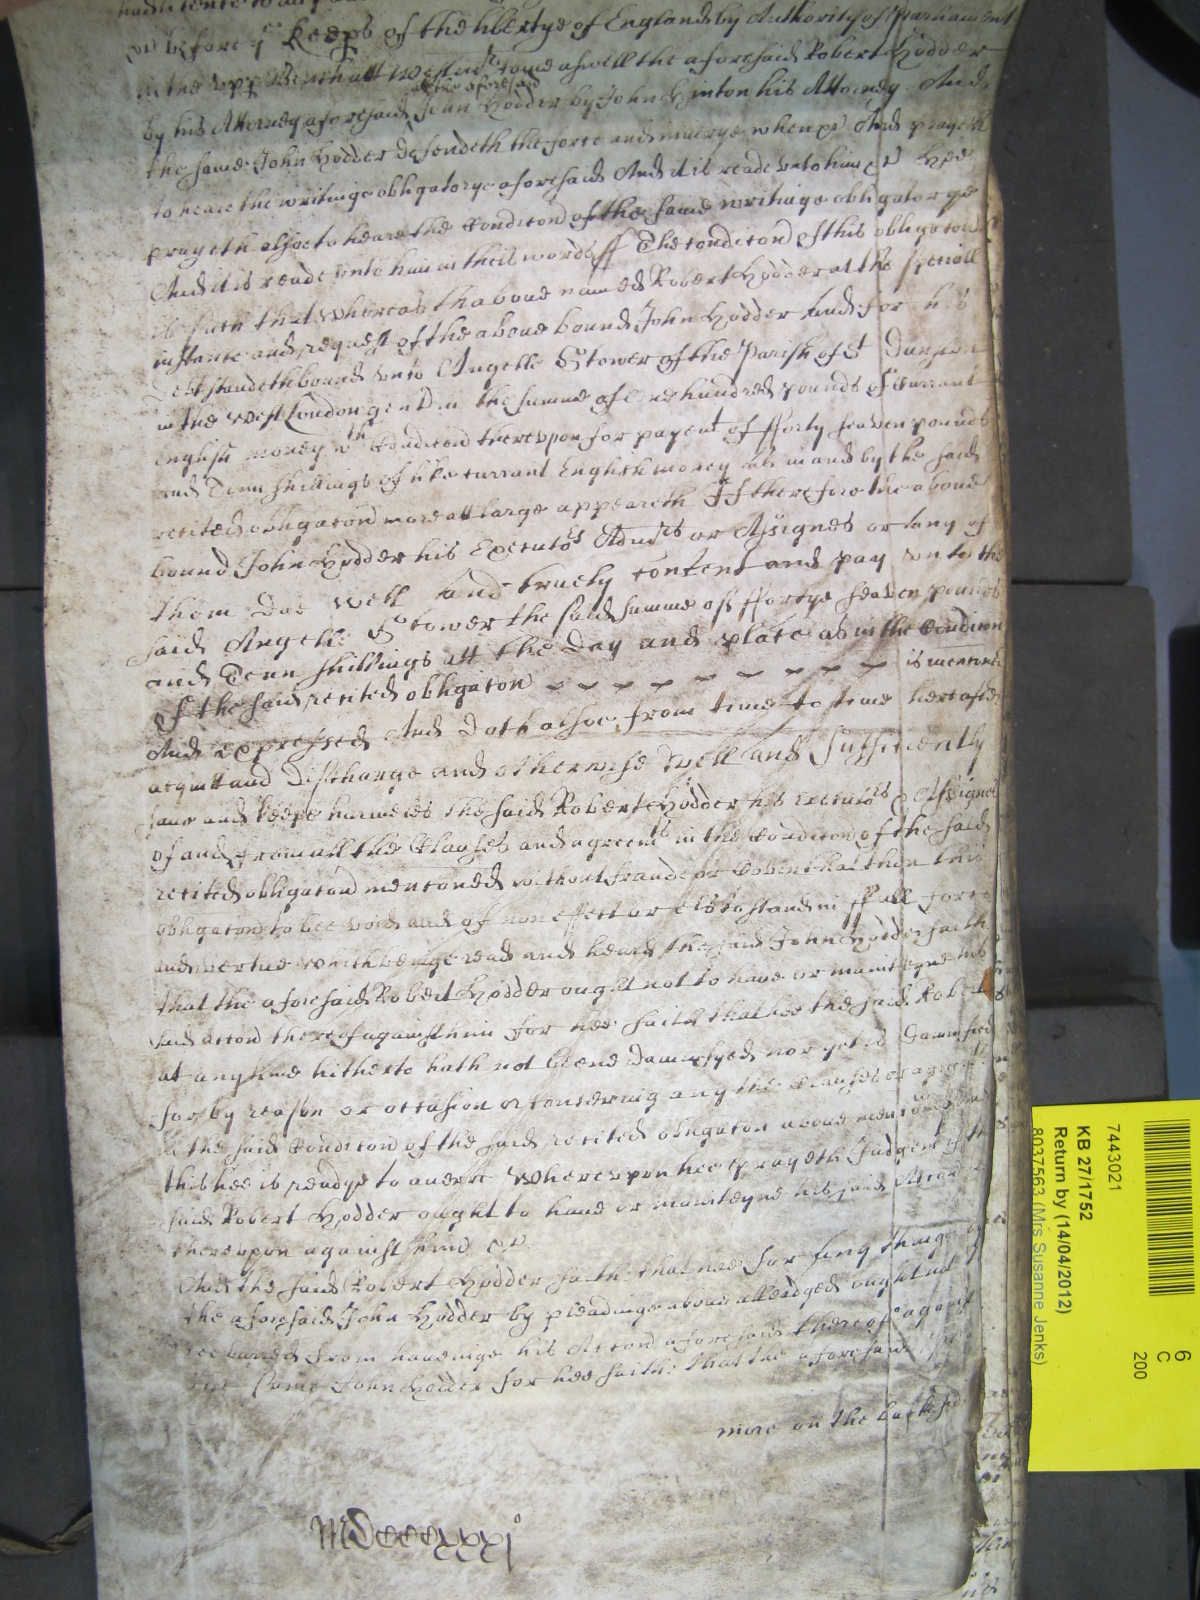 before ye Keeps of the libertye of England by Authority of Parliament
in the upp Bench att Westmr come aswell the aforesaid Robert Hodder
by his Attorney aforesaid as the aforesaid John Hodder by John Hinton his Attorney And
the same John Hodder defendeth the force and iniurye when &c And prayeth
to heare the writinge obligatorye aforesaid And it is reade vnto him &c Hee
prayeth alsoe to heare the Condicon of the same writinge obligatorye
And it is reade vnto him in theis words ss The condicon of this obligacon
is such that whereas thaboue named Robert Hodder at the speciall
instance and request of the aboue bound John Hodder And for his
Debt standeth bound vnto Angelle Stower of the Parish of St Dunston
in the West London gent in the summe of One hundred pounds of Currant
english money wth Condicon therevpon for paymt of fforty seaven pounds
and Tenn shillings of like currant English money as in and by the said
recited obligacon more att large appeareth If therefore the aboue
bound John Hodder his Executors Admrs or Assignes or any of
them doe well and truely content and pay vnto the
said Angelle Stower the said summe of ffortye seaven pounds
and Tenn shillings att the Day and place as in the Condicon
of the said recited obligacon is mencined
And expressed And doth alsoe from time to time hereafter
acquitt and discharge and otherwise well and sufficiently
saue and keepe harmeles the said Robert Hodder his executors & Assignes
of and from all the Clauses and agreemts in the Condicon of the said
recited obligacon mencioned without fraude or Coven that then this
obligacon to bee void and of non effect or els to stand in ffull force
and vertue which beinge read and heard the said John Hodder saith
that the aforesaid Robert Hodder ought not to haue or mainteyne his
said accon thereof against him for hee saith that hee the said Robert
at any time hitherto hath not beene damnifyed nor yet is damnified
for by reason or occasion or concerning any the Clauses or agreemts
in the said Condicon of the said recited obligacon aboue mencioned And
this hee is readye to averre Wherevpon hee prayeth Judgemt if the
said Robert Hodder ought to haue or mainteyne his said Accon
therevpon against him &c
And the said Robert Hodder saith that hee for any thinge by
the aforesaid John Hodder by pleadinge aboue alleadged ought not
to bee barred from haueinge his Accon aforesaid thereof against
the same John Hodder for hee saith that the aforesaid
more on the backside
MDccccxxxjo
7443021
KB 27/1752
Return by (14/04/2012)
8037563 (Mrs Susanne Jenks)
6
C
200